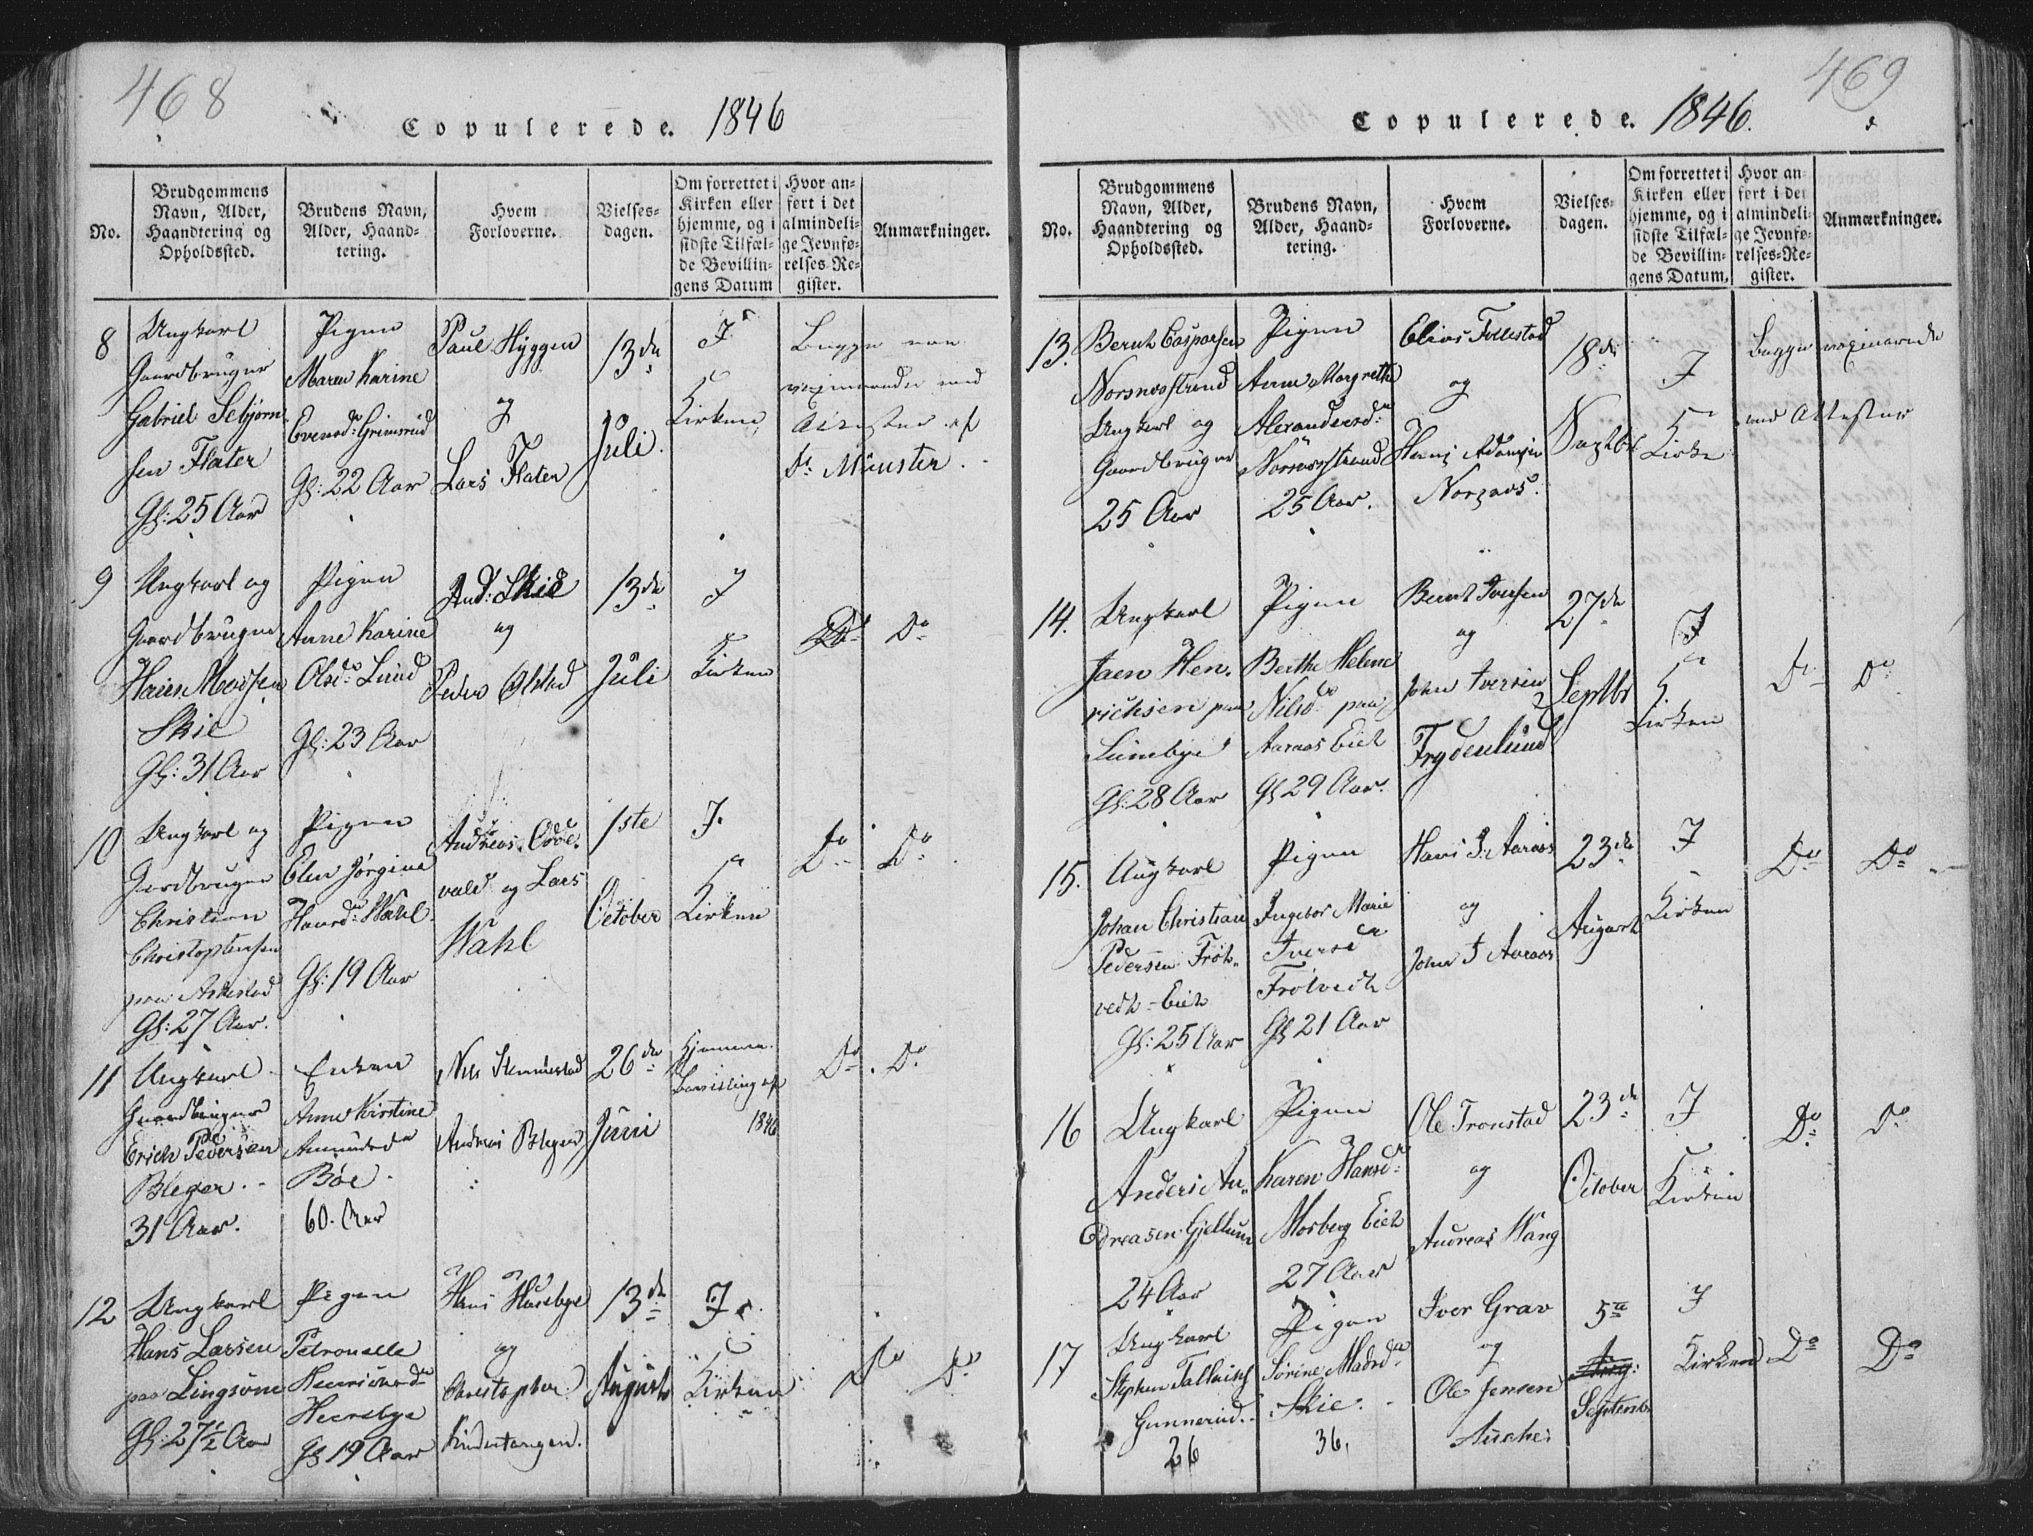 468
Copulerede. 1846
No.
Brudgommens
Navn, Alder,
Haandtering og
Opholdssted.
Brudens Navn,
Alder, Haand-
tering.
Hvem
Forloverne.
Vielses-
dagen.
Om forrettet i
Kirken eller
hjemme, og i
sidste Tilfæl-
de Bevillin-
gens Datum
Hvor an-
ført i det
almindeli-
ge Jevnfø-
relses-Re-
gister.
Anmærkninger.
8
Ungkarl
Gaardbruger
Gabriel Sebjørn-
sen Flater
Gl: 25 Aar
Pigen
Maren Karine
Evensd: Grimsrud
Gl: 22 Aar
Paul Hyggen
og
Lars Flaten
13de
Juli.
I
Kirken
Begge
vaxinerede med
Attester af
Dr. Münster.
9
Ungkarl og
Gaardbruger
Skie
Gl: 31 Aar
Pigen
Anne Karine
Olsd: Lund
Gl: 23 Aar
And: Skie
og
Peder
13de
Juli
I
Kirken
Do
10
Ungkarl og
Gaardbruger
Christian
Christophersen
paa
Gl: 27 Aar.
Pigen
Elen Jørgine
Wahl.
Gl: 19 Aar
Andreas Odde-
vald og Lars
Wahl
1ste
October
I
Kirken
Do Do
11
Ungkarl
Gaardbruger
Erich Pedersen
Bleger
31 Aar.
Enken
Anne Kirstine
Amundsd
Bøe
60. Aar
Nils
Andreas Bleger
26de
Juni
Hjemme
Bevilling af
1846
Do Do
12
Ungkarl
Hans Larsen
paa Lingsom
Gl: 27½ Aar
Pigen
Petronelle
Henrichsd
Heerebye
Gl 19 Aar
Hans Huseby
og
Christopher
Kinnertangen.
13de
August
I
Kirken
Do Do
469
Copulerede. 1846.
No.
Brudgommens
Navn, Alder,
Haandtering og
Opholdssted.
Brudens Navn,
Alder, Haand-
tering.
Hvem
Forloverne.
Vielses-
dagen.
Om forrettet i
Kirken eller
hjemme, og i
sidste Tilfæl-
de Bevillin-
gens Datum.
Hvor an-
ført i det
almindeli-
ge Jevnfø-
relses-Re-
gister.
Anmærkninger.
13.
Bernt Casparsen
Norsnæsstrand
Ungkarl og
Gaardbruger
25 Aar
Pigen
Anne Margrethe
Alexandersd:
Norsnæsstrand
25 Aar.
Elias Follestad
og
Hans Adamsen
Norsnæs.
18de
Septbr
I
Kirken
Begge vaxinerede
med Attester
14.
Ungkarl
Jaen Hen-
richsen paa
Lunbye
Gl: 28 Aar
Pigen
Berthe Helene
Nilsd paa
Aaraas Eiet
Gl 29 Aar.
Bernt Iversen
og
John Iversen
Frydenlund
27de
Septbr
I
Kirken
Do Do
15.
Ungkarl
Johan Christian
Pedersen Frøt-
vedt-Eiet
Gl: 25 Aar
Pigen
Ingebor Marie
Iversd
Frøtvedt
Gl 21 Aar
Hans J. Aaraas
og
John I Aaraas
23de
August
I
Kirken
Do Do
16
Ungkarl
Anders An-
dreasen Gjellum
24 Aar
Pigen
Karen Hansd:
Morberg Eiet
27 Aar
Ole Tronstad
og
Andreas Wang
23de
October
I
Kirken
Do Do
17
Ungkarl
Stephen Tallaksen
Gunnerud.
26
Pigen
Sørine Madsd
Skie.
36,
Iver Grav
og
Ole Jensen
5te
Aug:
Septembr
I
Kirken
Do Do